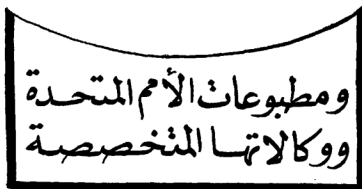 ومطبوعات الأمم المتحدة
ووكالاتها المتخصصة